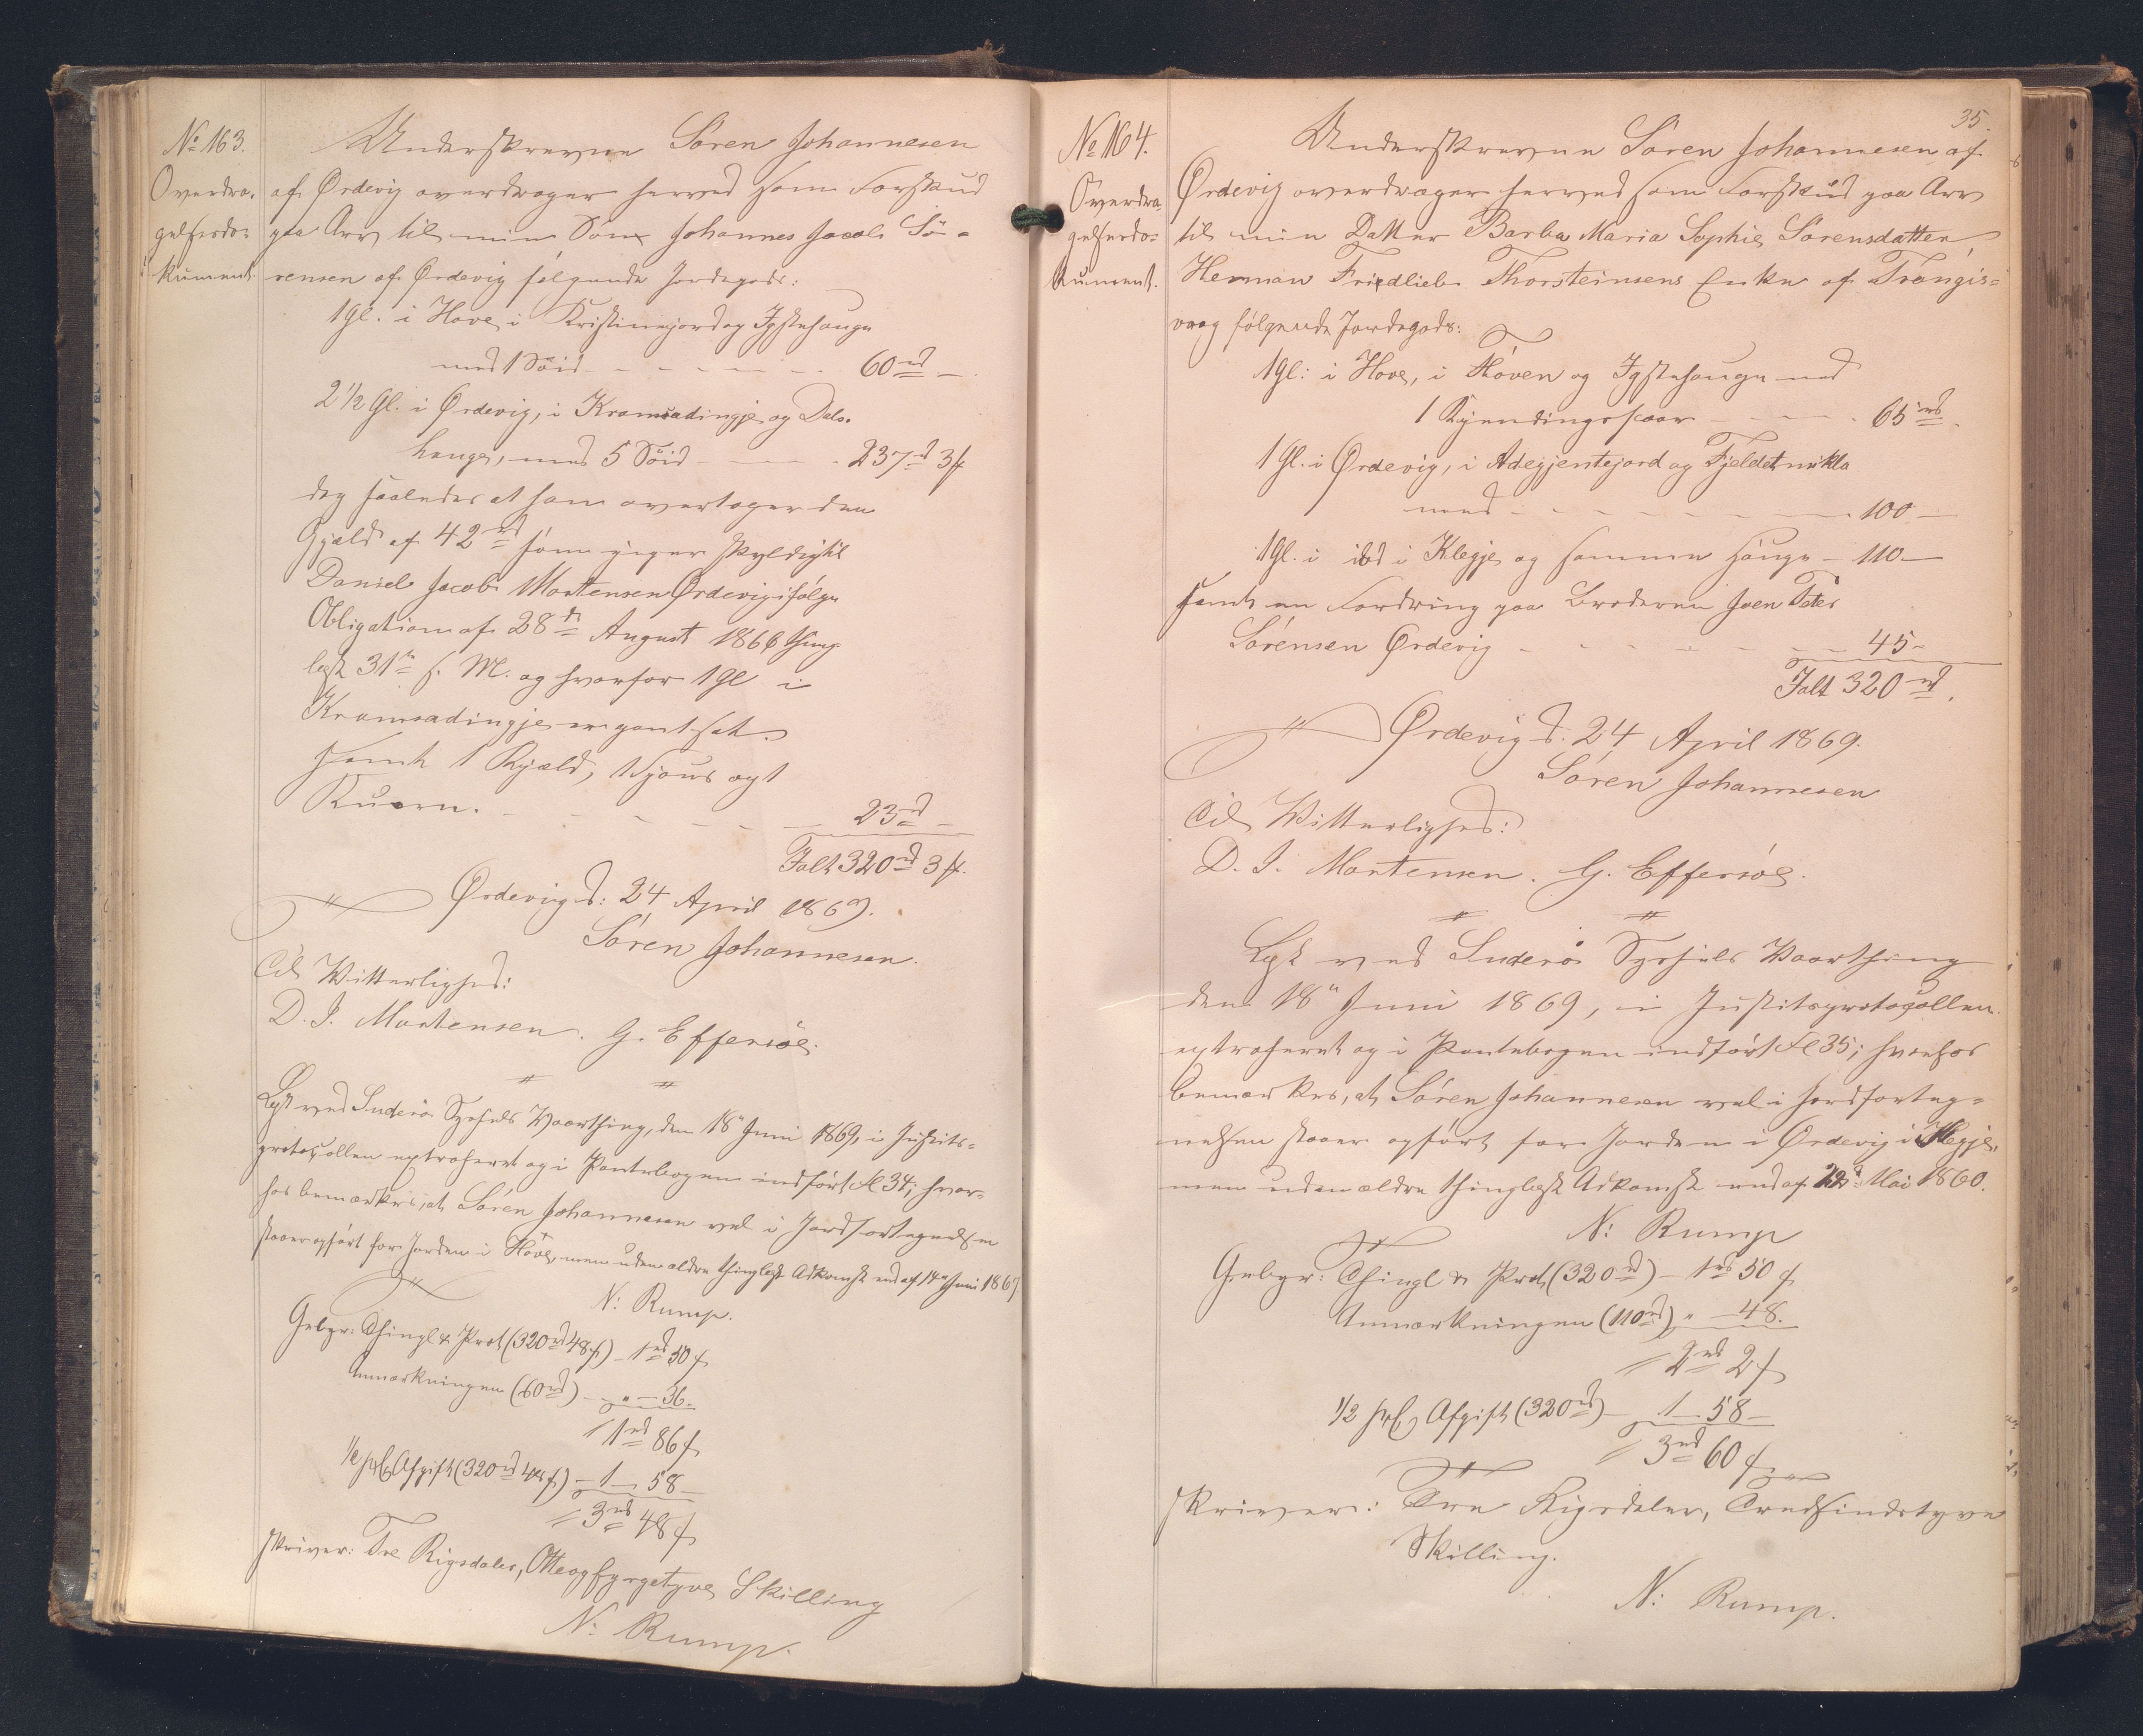 No 163.
Overdra-
gelsesdo-
kument.
Underskrevne Sören Johannesen
af Ördevig overdrager herved som Forskud
paa Arv til min Søn Johannes Jacob Sö-
rensen af Ördevig følgende Jordegods:
1 Gl. i Hove, i Kristinejord og Igstehauge
med 1 Söid - - - - - 60 rd -
2 1/2 Gl. i Ördevig, i Kramsadingje og Dals-
hauge, med 5 Söid - - - 237 rd 3 ſk
dog saaledes at han overtager den
Gjæld af 42 rd som jeg er skyldig til
Daniel Jacob Mortensen Ördevig ifølge
Obligation af 28de August 1866 thing-
læst 31te s. M. og hvorfor 1 Gl i
Kramsadingje er pantsat.
samt 1 Kjæld, 1 Hjour og 1
Kuorn. - - - - - 23 rd -
Ialt 320 rd 3 ſk.
Ördevig d: 24 April 1869.
Sören Johannesen.
Til Vitterlighed:
D. J. Mortensen. G. Effersöe.
Læst ved Suderö Syssels Vaarthing, den 18de Juni 1869, i Justits-
protocollen extraheret og i Pantebogen indført Fol 34; hvor-
hos bemærkes, at Sören Johannesen vel i Jordfortegnelsen
staaer opført for Jorden i Hove, men uden ældre thinglæst Adkomst end af 14de Juni 1867
N: Rump.
Gebyr: Thingl & Prot (320 rd 48 ſk) - 1 rd 50 ſk
Anmærkningen (60 rd) - " - 36.
1 rd 86 ſk
1/2 pCt Afgift (320 rd 48 ſk) - 1 - 58 -
3 rd 48 ſk
skriver: Tre Rigsdaler, Otteogfyrgetyve Skilling
N: Rump.
35.
No 164.
Overdra-
gelsesdo-
kument.
Underskrevne Sören Johannesen af
Ördevig overdrager herved som Forskud paa Arv
til min Datter Barba Maria Sophie Sörensdatter,
Herman Friedlieb Thorsteinsens Enke af Trangis-
vaag følgende Jordegods:
1 Gl: i Hove, i Höven og Igstehauge med
1 Kyendingsskaar - - - 65 rd -
1 Gl. i Ördevig, i Adegjentejord og Fjeldet mikla
med - - - - - 100 -
1 Gl. i ibd i Klegje og samme Hauge - 110 -
samt en Fordring paa Broderen Joen Peter
Sörensen Ördevig - - - - - 45 -
Ialt 320 rd.
Ördevig d. 24 April 1869.
Sören Johannesen
Til Vitterlighed:
D. J. Mortensen. G. Effersöe.
Læst ved Suderö Syssels Vaarthing
den 18de Juni 1869, i Justitsprotocollen
extraheret og i Pantebogen indført Fol 35; hvorhos
bemærkes, at Sören Johannesen vel i Jordforteg-
nelsen staaer opført for Jorden i Ördevig i Klegje,
men uden ældre thinglæst Adkomst end af 22d Mai 1860.
N: Rump
Gebyr: Thingl & Prot (320 rd) - 1 rd 50 ſk
Anmærkningen (110 rd) " - 48.
2 rd 2 ſk
1/2 pCt Afgift (320 rd) - 1 - 58 -
3 rd 60 ſk
skriver: Tre Rigsdaler, Tredsindstyve
Skilling.
N: Rump.